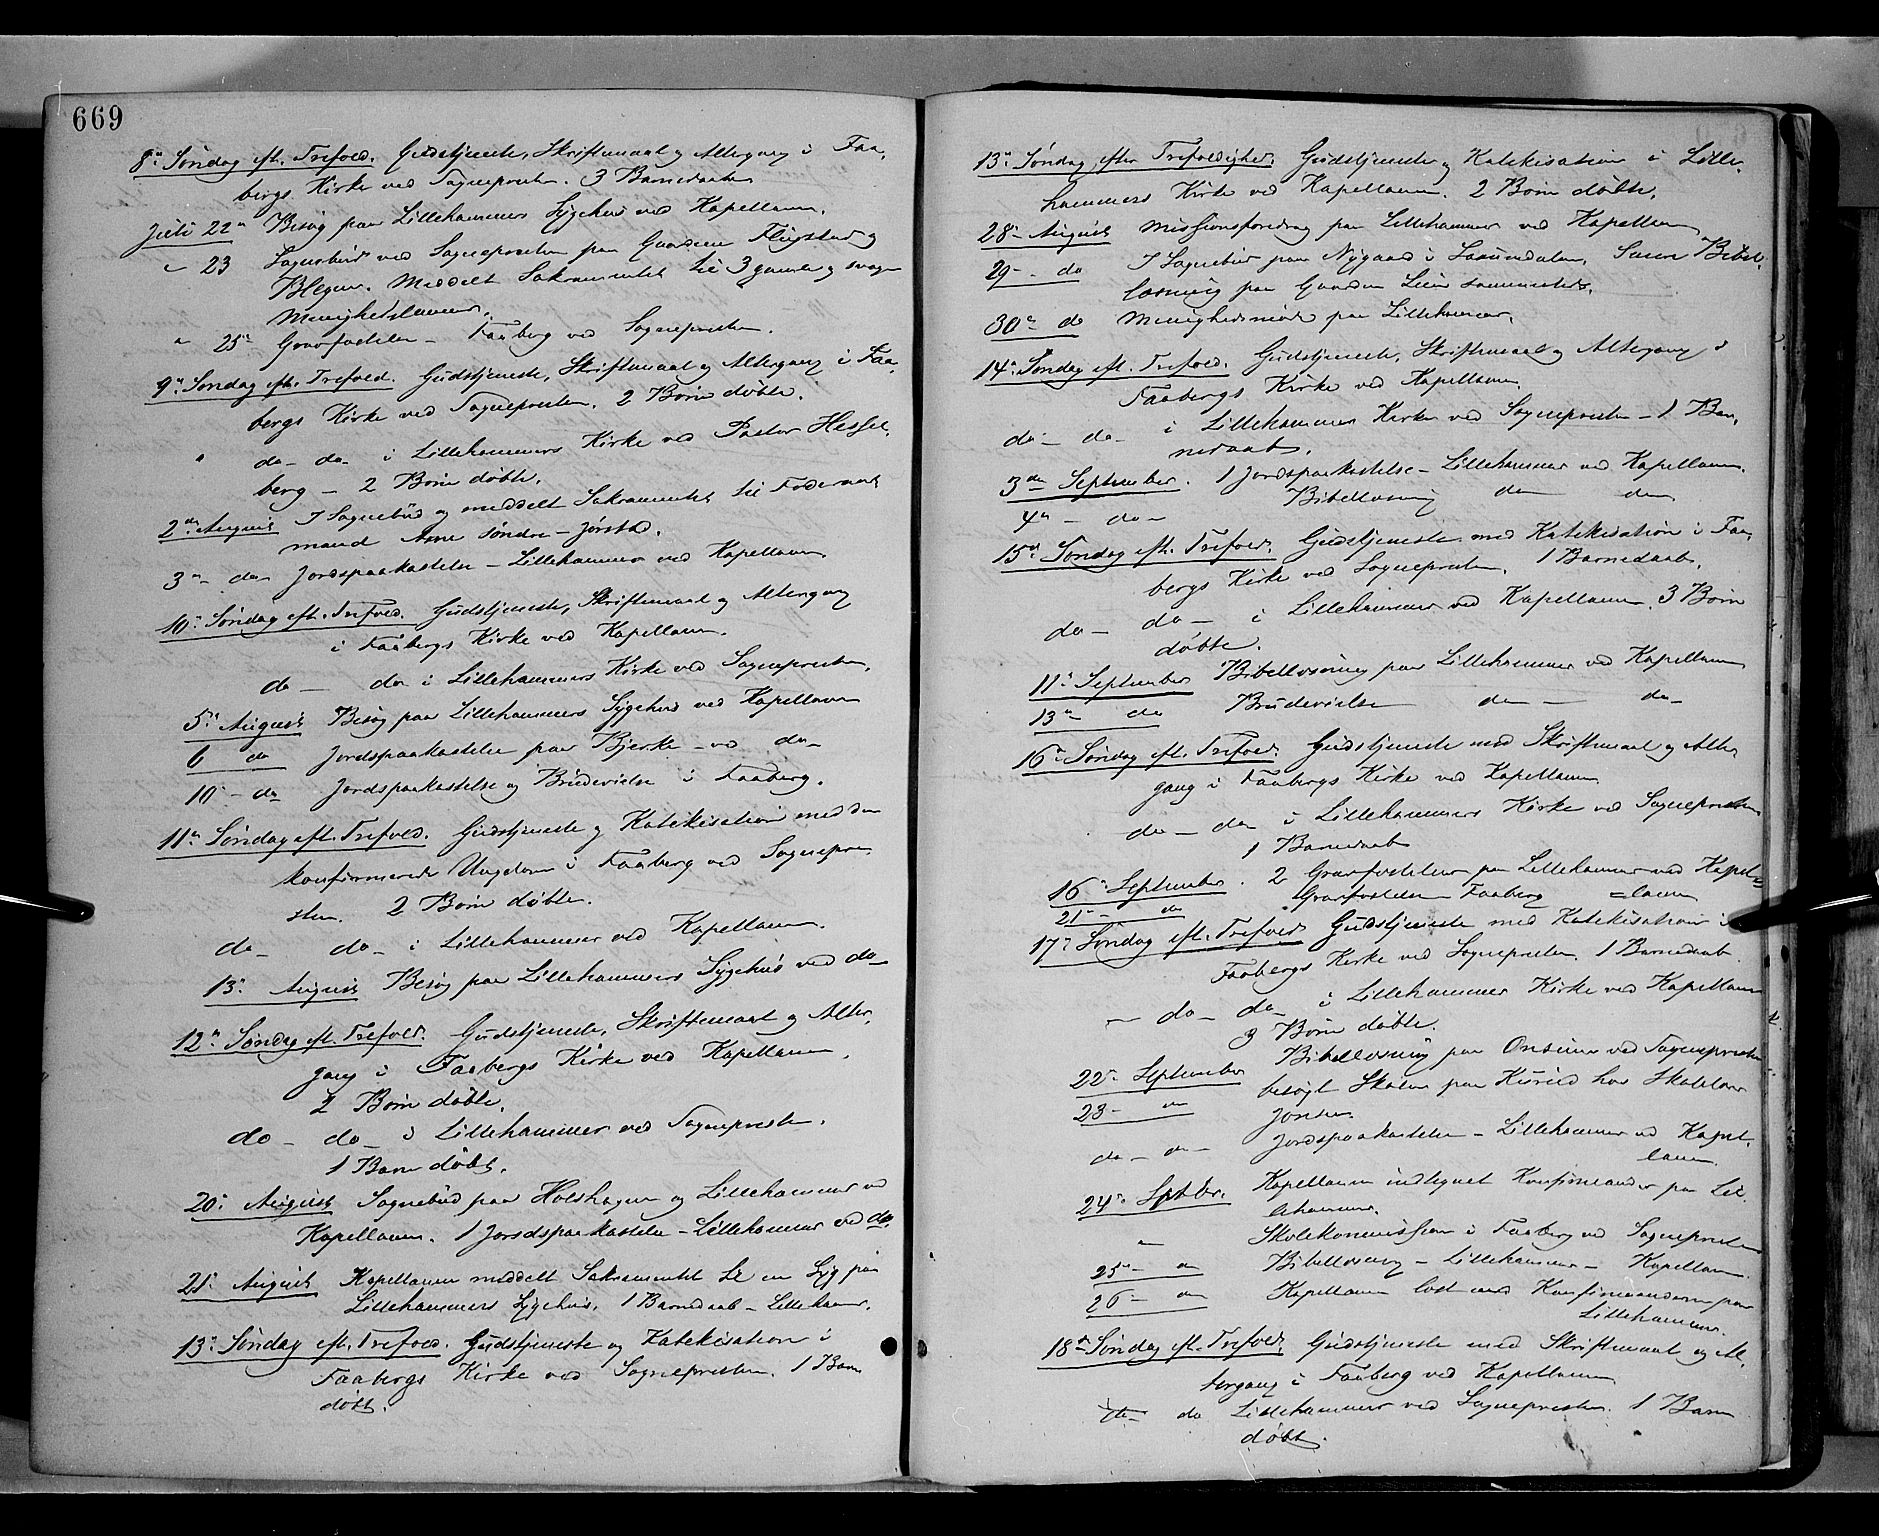 669
8de Søndag eft. Trefold. Gudstjeneste, Skriftemaal og Altergang i Faa-
bergs Kirke ved Sognepresten. 3 Barnedaab
Juli 22n Besøg paa Lillehammers Sygehus ved Kapellanen.
" 23 Sognebud ved Sognepresten paa Gaardene Flugstad og
Blegen. Meddelt Sakramentet til 3 gamle og svage
Menighedslemmer.
" 25n Gravfæstelse - Faaberg ved Sognepresten.
9n Søndag eft. Trefold. Gudstjeneste, Skriftemaal og Altergang i Faa-
bergs Kirke ved Sognepresten. 2 Børn døbte.
" do - do - i Lillehammers Kirke ved Pastor Hessel-
berg - 2 Børn døbte.
2den August I Sognebud og meddelt Sakramentet til Føderaads-
mand Arne søndre - Jørstad.
3n - do - Jordspaakastelse - Lillehammer ved Kapellanen
10n Søndag eft. Trefold. Gudstjeneste, Skriftemaal og Altergang
i Faabergs Kirke ved Kapellanen.
do - do i Lillehammers Kirke ved Sognepresten.
5n August Besøg paa Lillehammers Sygehus ved Kapellanen
6 do Jordspaakastelse paa Bjerke - ved do -
10 - do Jordspaakastelse og Brudevielse i Faaberg.
11n Søndag eft. Trefold. Gudstjeneste og Katekisation med den
konfirmerede Ungdom i Faaberg ved Sognepre-
sten. 2 Børn døbte.
do - do - i Lillehammer ved Kapellanen.
13n August Besøg paa Lillehammers Sygehus ved do -
12n Søndag eft. Trefold. Gudstjeneste, Skriftemaal og Alter-
gang i Faabergs Kirke ved Kapellanen.
2 Børn døbte.
do - do - i Lillehammer ved Sognepresten.
1 Barn døbt.
20n August Sognebud paa Holshagen og Lillehammer ved
Kapellanen. 1 Jordspaakastelse - Lillehammer ved do.
21n August Kapellanen meddelt Sakramentet til en Syg paa
Lillehammers Sygehus. 1 Barnedaab - Lillehamr.
13n Søndag eft. Trefold. Gudstjeneste og Katekisation i
Faabergs Kirke ved Sognepresten. 1 Barn
døbt.
13n Søndag efter Trefoldighed. Gudstjeneste og Katekisation i Lille-
hammers Kirke ved Kapellanen. 2 Børn døbte.
28n August Missionsforedrag paa Lillehammer ved Kapellanen
29n - do I Sognebud paa Nygaard i Saxumdalen. Samme Bibel-
læsning paa Gaarden Lien sammesteds.
30n do Menighedsmøde paa Lillehammer.
14n Søndag eft. Trefold. Gudstjeneste, Skriftemaal og Altergang i
Faabergs Kirke ved Kapellanen
do - do - i Lillehammers Kirke ved Sognepresten - 1 Bar-
nedaab.
3den September. 1 Jordspaakastelse - Lillehammer ved Kapellanen.
4n - do - Bibellæsning do do
15n Søndag eft. Trefold. Gudstjeneste med Katekisation i Faa-
bergs Kirke ved Sognepresten. 1 Barnedaab.
do - do - i Lillehammer ved Kapellanen. 3 Børn
døbte.
11n September Bibellæsning paa Lillehammer ved Kapellanen
13n do Brudevielse do - do -
16n Søndag eft. Trefold. Gudstjeneste med Skriftemaal og Alter-
gang i Faabergs Kirke ved Kapellanen
do - do i Lillehammers Kirke ved Sognepresten
1 Barnedaab
16n September. 2 Gravfæstelser paa Lillehammer ved Kapel-
21n - do Gravfæstelse Faaberg =lanen
17n Søndag eft. Trefold Gudstjeneste med Katekisation i
Faabergs Kirke ved Sognepresten 1 Barnedaab.
- do - do - i Lillehammer Kirke ved Kapellanen
3 Børn døbte.
22n September Bibellæsning paa Onsum ved Sognepresten
23 - do besøgt Skolen paa hos Skolelærer
Jonsen.
do - do - Jordspaakastelse - Lillehammer ved Kapel-
lanen.
24n Septbr. Kapellanen indtegnet Konfirmander paa Lil-
lehammer.
" Skolekommission i Faaberg ved Sognepresten
25n - do Bibellæsning - Lillehammer - Kapellanen.
26 - do Kapellanen læst med Konfirmanderne paa
Lillehammer.
18n Søndag eft. Trefold. Gudstjeneste med Skriftemaal og Al-
tergang i Faaberg ved Kapellanen
do - do Lillehammer ved Sognepresten. 1 Barn
døbt.